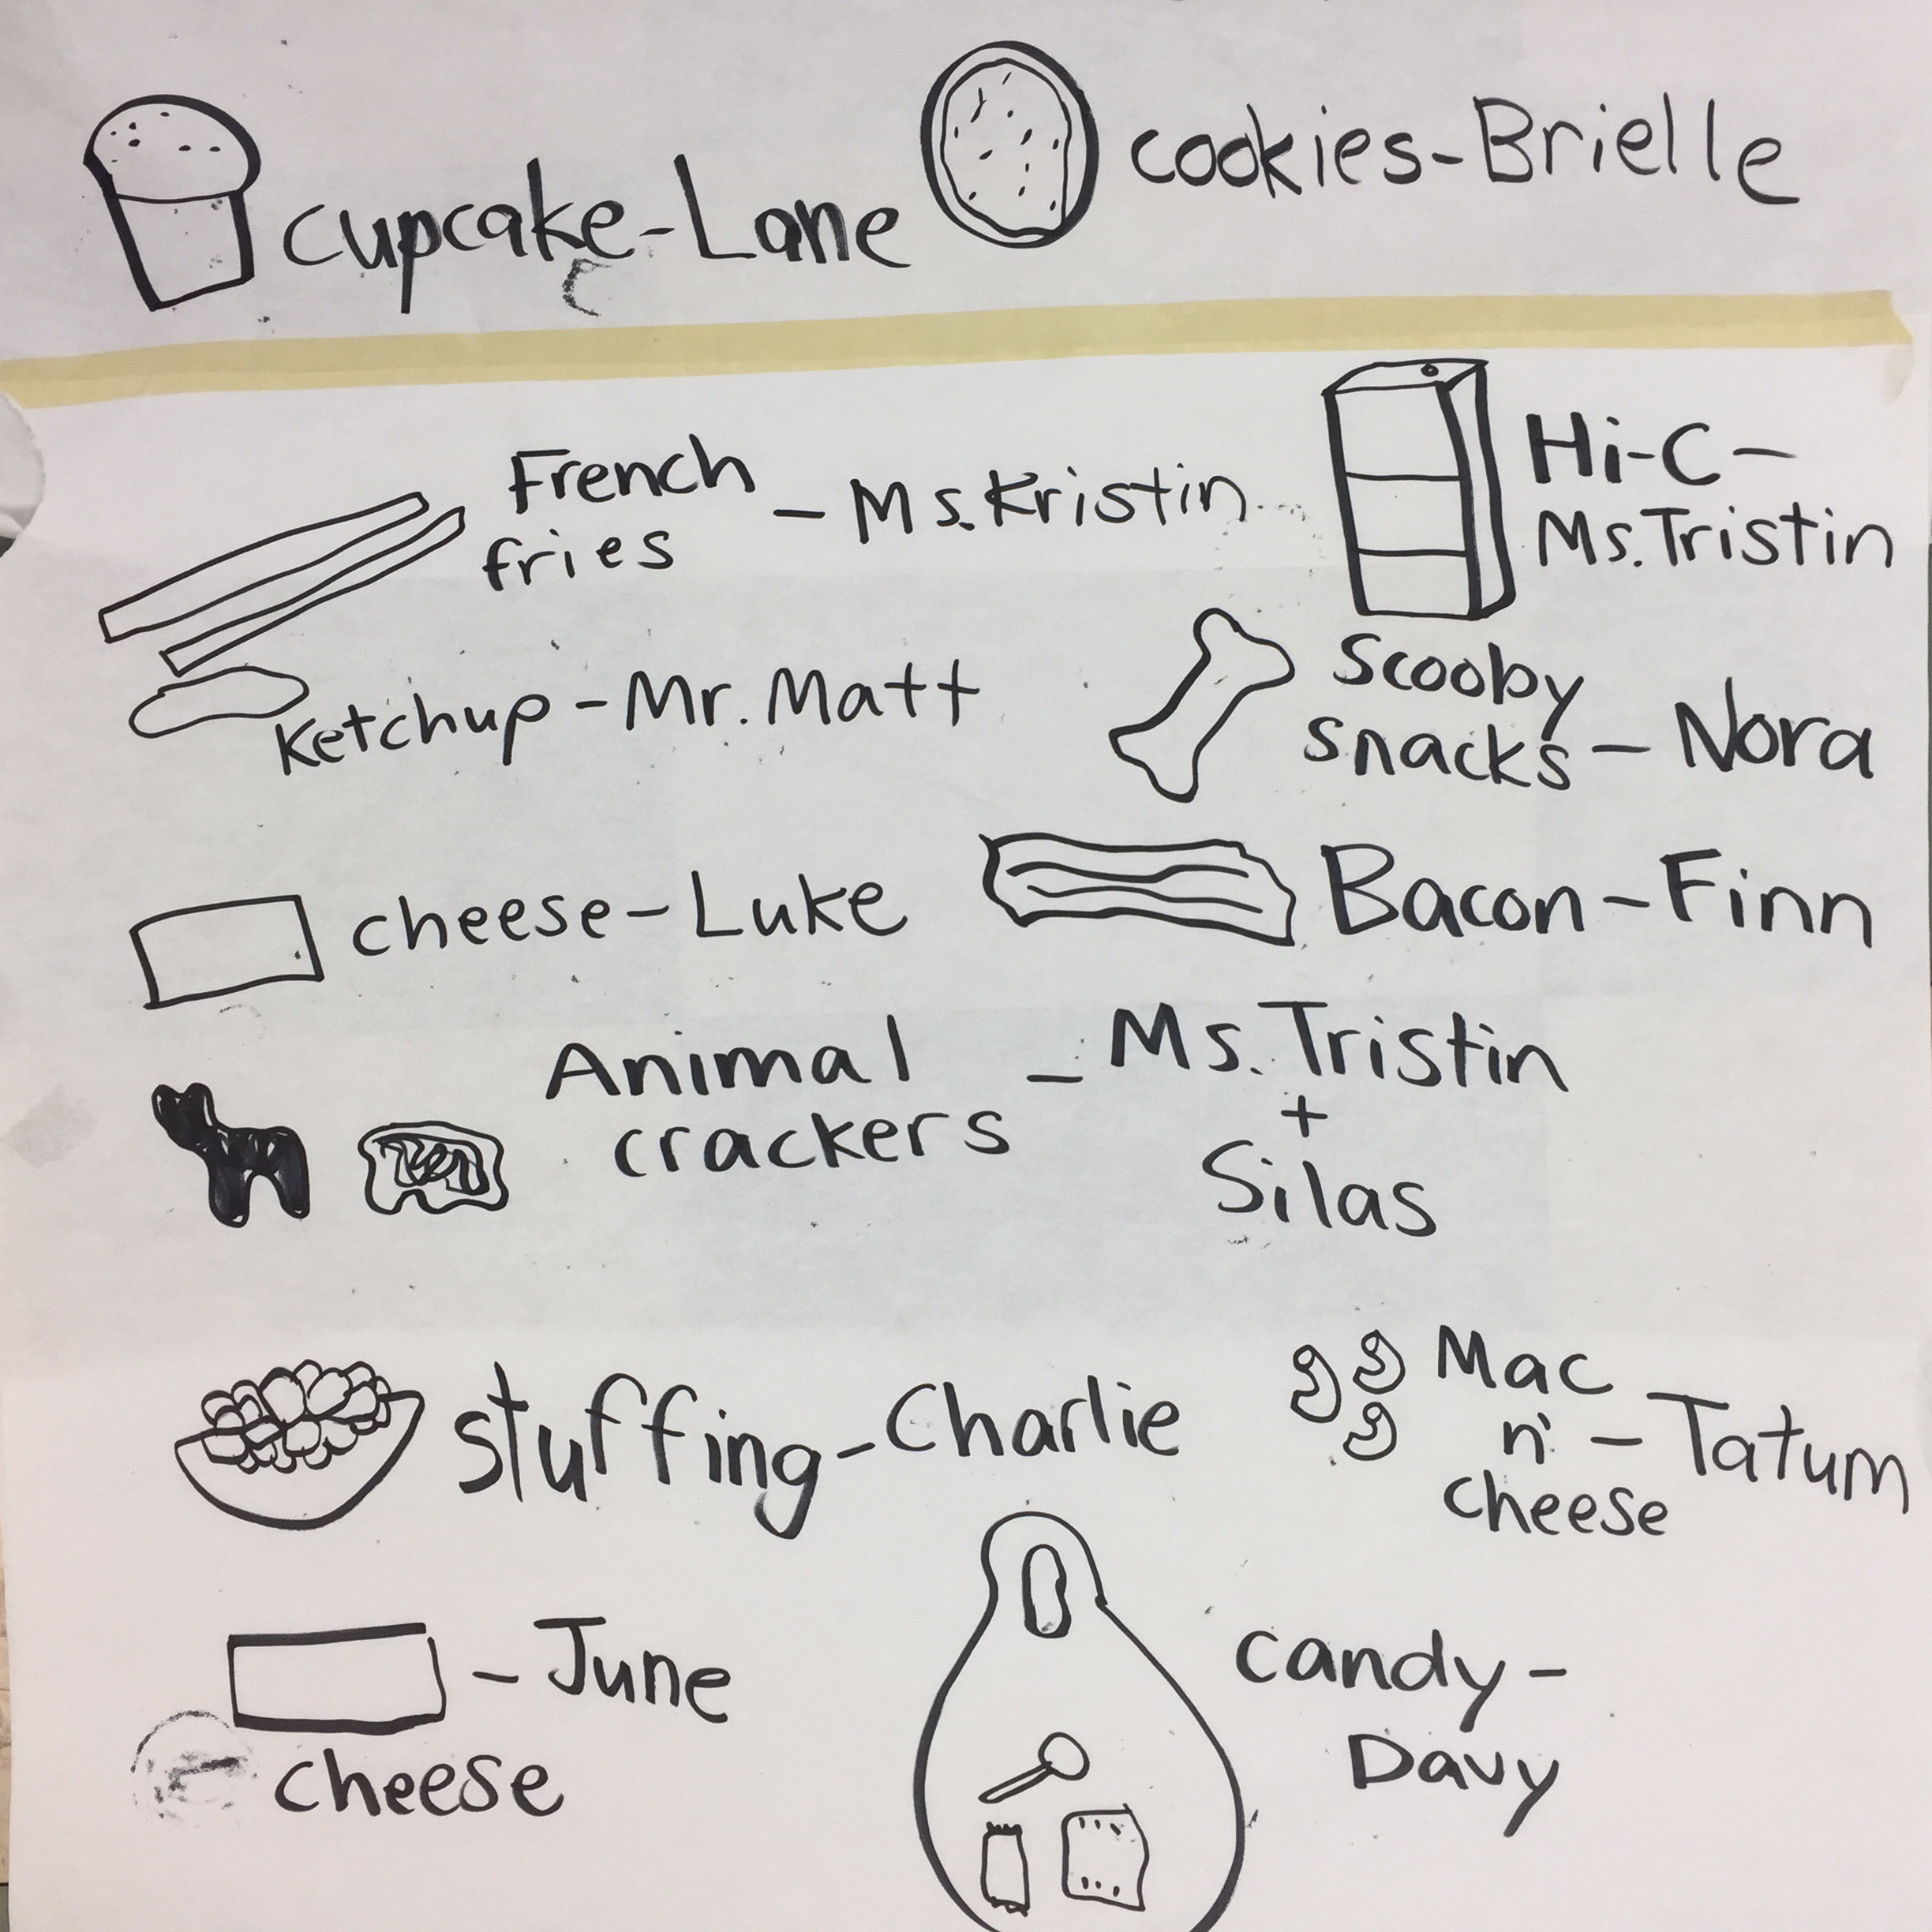 cupcake-Lane
cookies-Brielle
French
fries
- Ms. Kristin
Hi-C-
Ms. Tristin
Ketchup-Mr. Matt
Scooby
snacks - Nora
cheese-Luke
Bacon-Finn
Animal
crackers
- Ms. Tristin
+
Silas
stuffing-Charlie
Mac
n'
cheese
- Tatum
- June
cheese
candy-
Davy